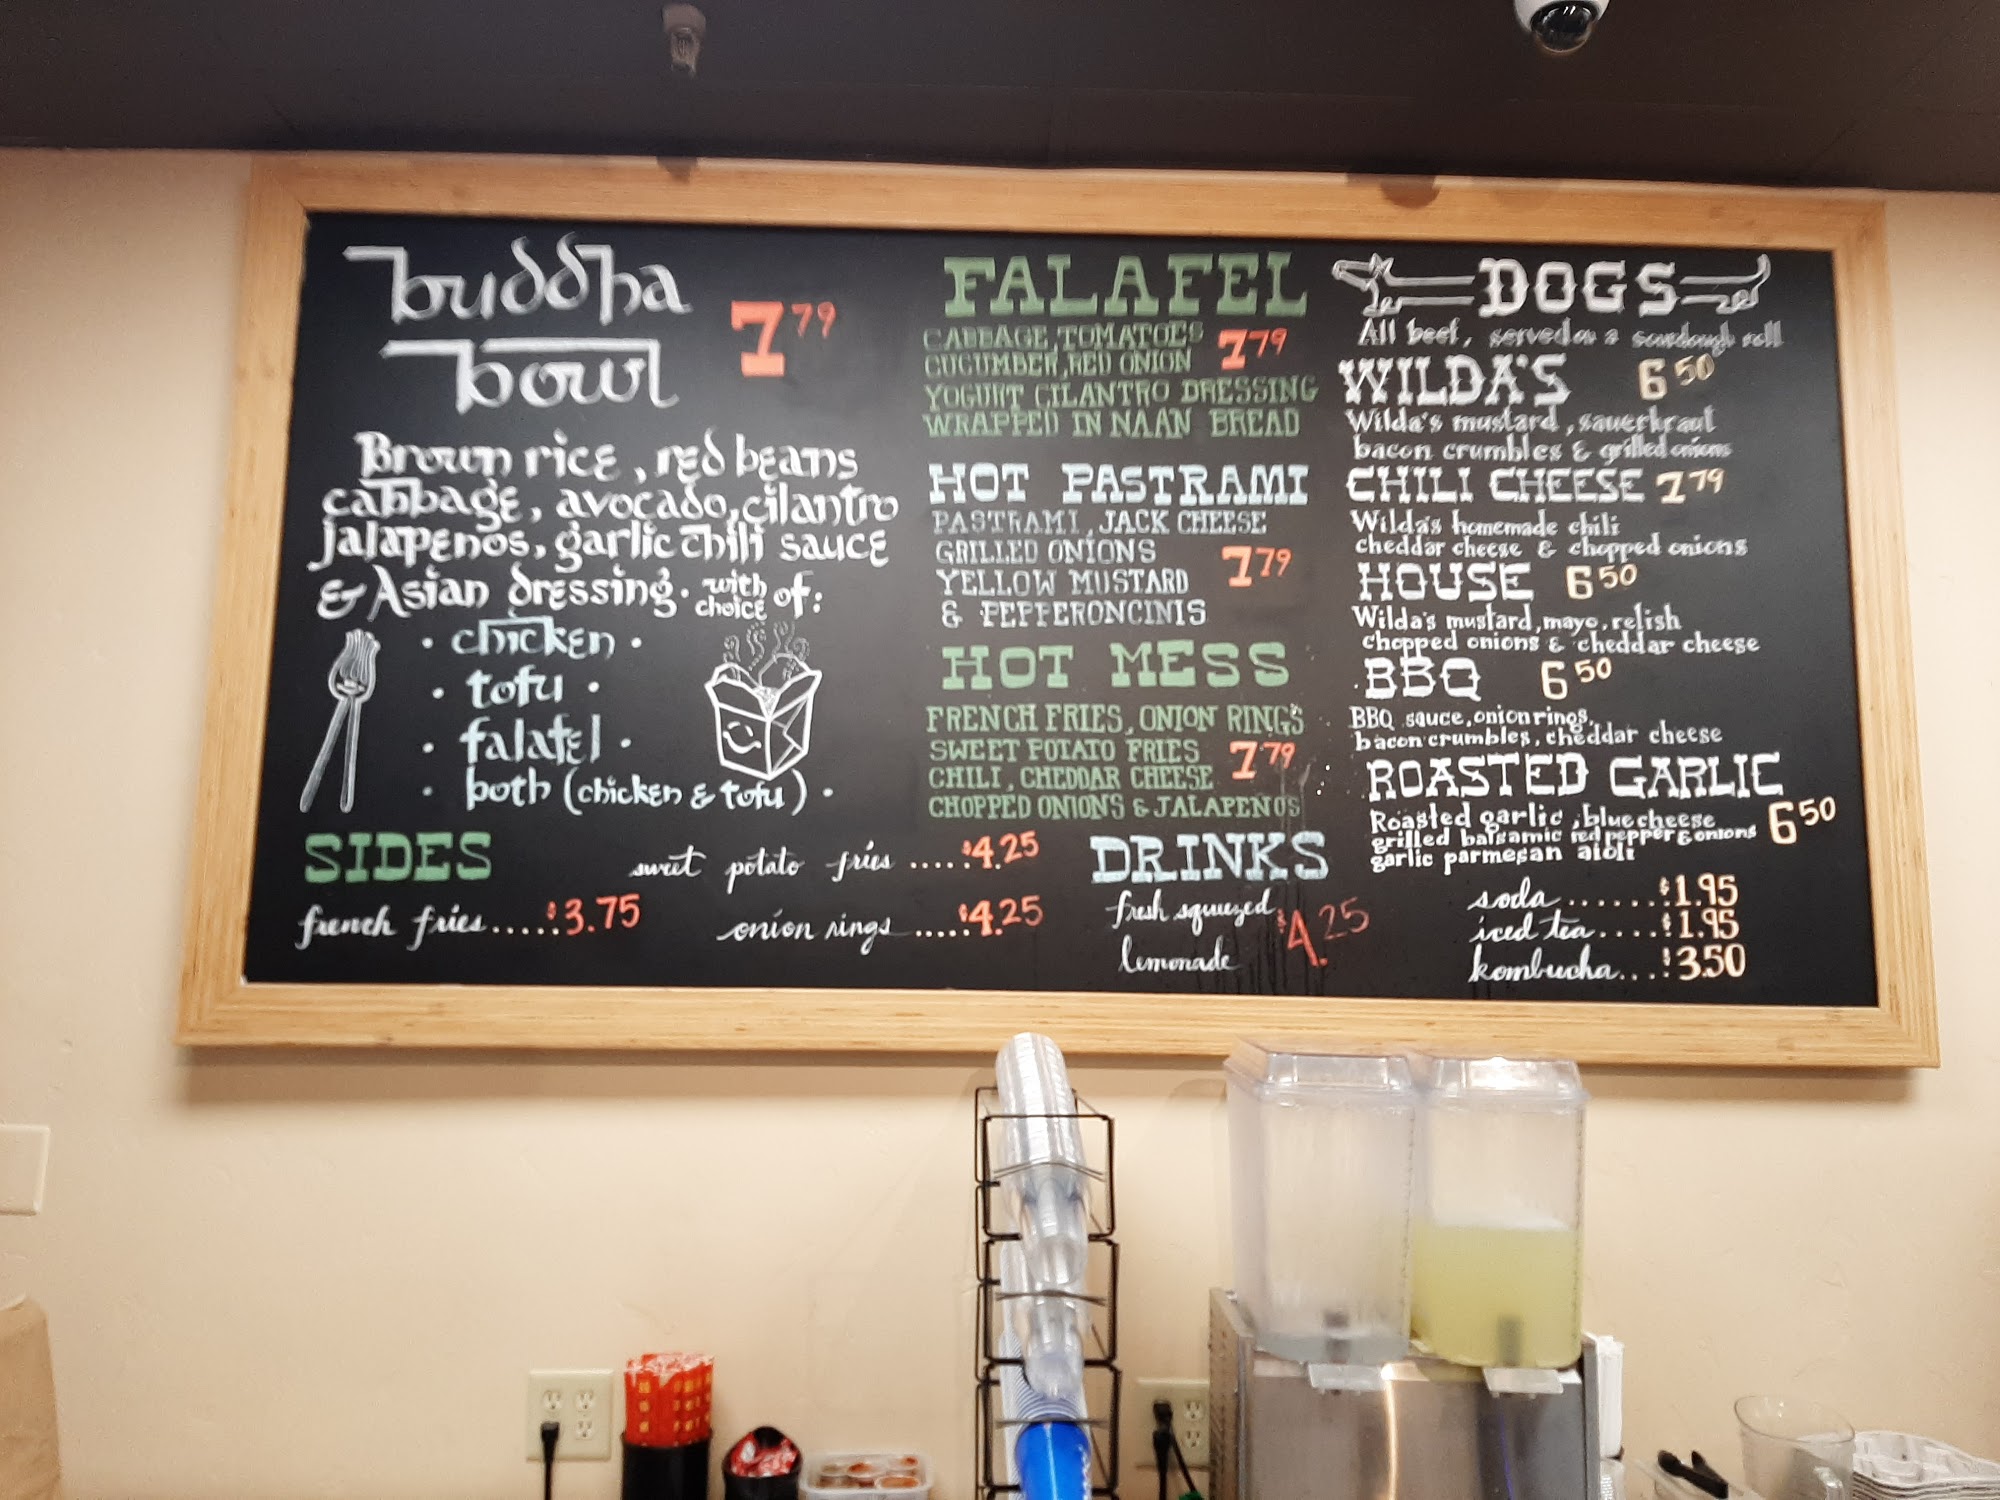 buddha
bowl
7 79
Brown rice, red beans
cabbage, avocado, cilantro
jalapenos, garlic chili sauce
& Asian dressing. with choice of:
• chicken •
• tofu •
• falafel •
• both (chicken & tofu) •
FALAFEL
CABBAGE, TOMATOES
CUCUMBER, RED ONION 7 79
YOGURT CILANTRO DRESSING
WRAPPED IN NAAN BREAD
HOT PASTRAMI
PASTRAMI, JACK CHEESE
GRILLED ONIONS
YELLOW MUSTARD 7 79
& PEPPERONCINIS
HOT MESS
FRENCH FRIES, ONION RINGS
SWEET POTATO FRIES 7 79
CHILI, CHEDDAR CHEESE
CHOPPED ONIONS & JALAPENOS
DOGS
All beef, served on a sourdough roll
WILDA'S 6 50
Wilda's mustard, sauerkraut
bacon crumbles & grilled onions
CHILI CHEESE 7 79
Wilda's homemade chili
cheddar cheese & chopped onions
HOUSE 6 50
Wilda's mustard, mayo, relish
chopped onions & cheddar cheese
BBQ 6 50
BBQ sauce, onion rings,
bacon crumbles, cheddar cheese
ROASTED GARLIC
Roasted garlic, blue cheese 6 50
grilled balsamic red pepper & onions
garlic parmesan aioli
SIDES
french fries.....$3.75
sweet potato fries.....$4.25
onion rings.....$4.25
DRINKS
fresh squeezed
lemonade $4.25
soda......$1.95
iced tea....$1.95
kombucha...$3.50